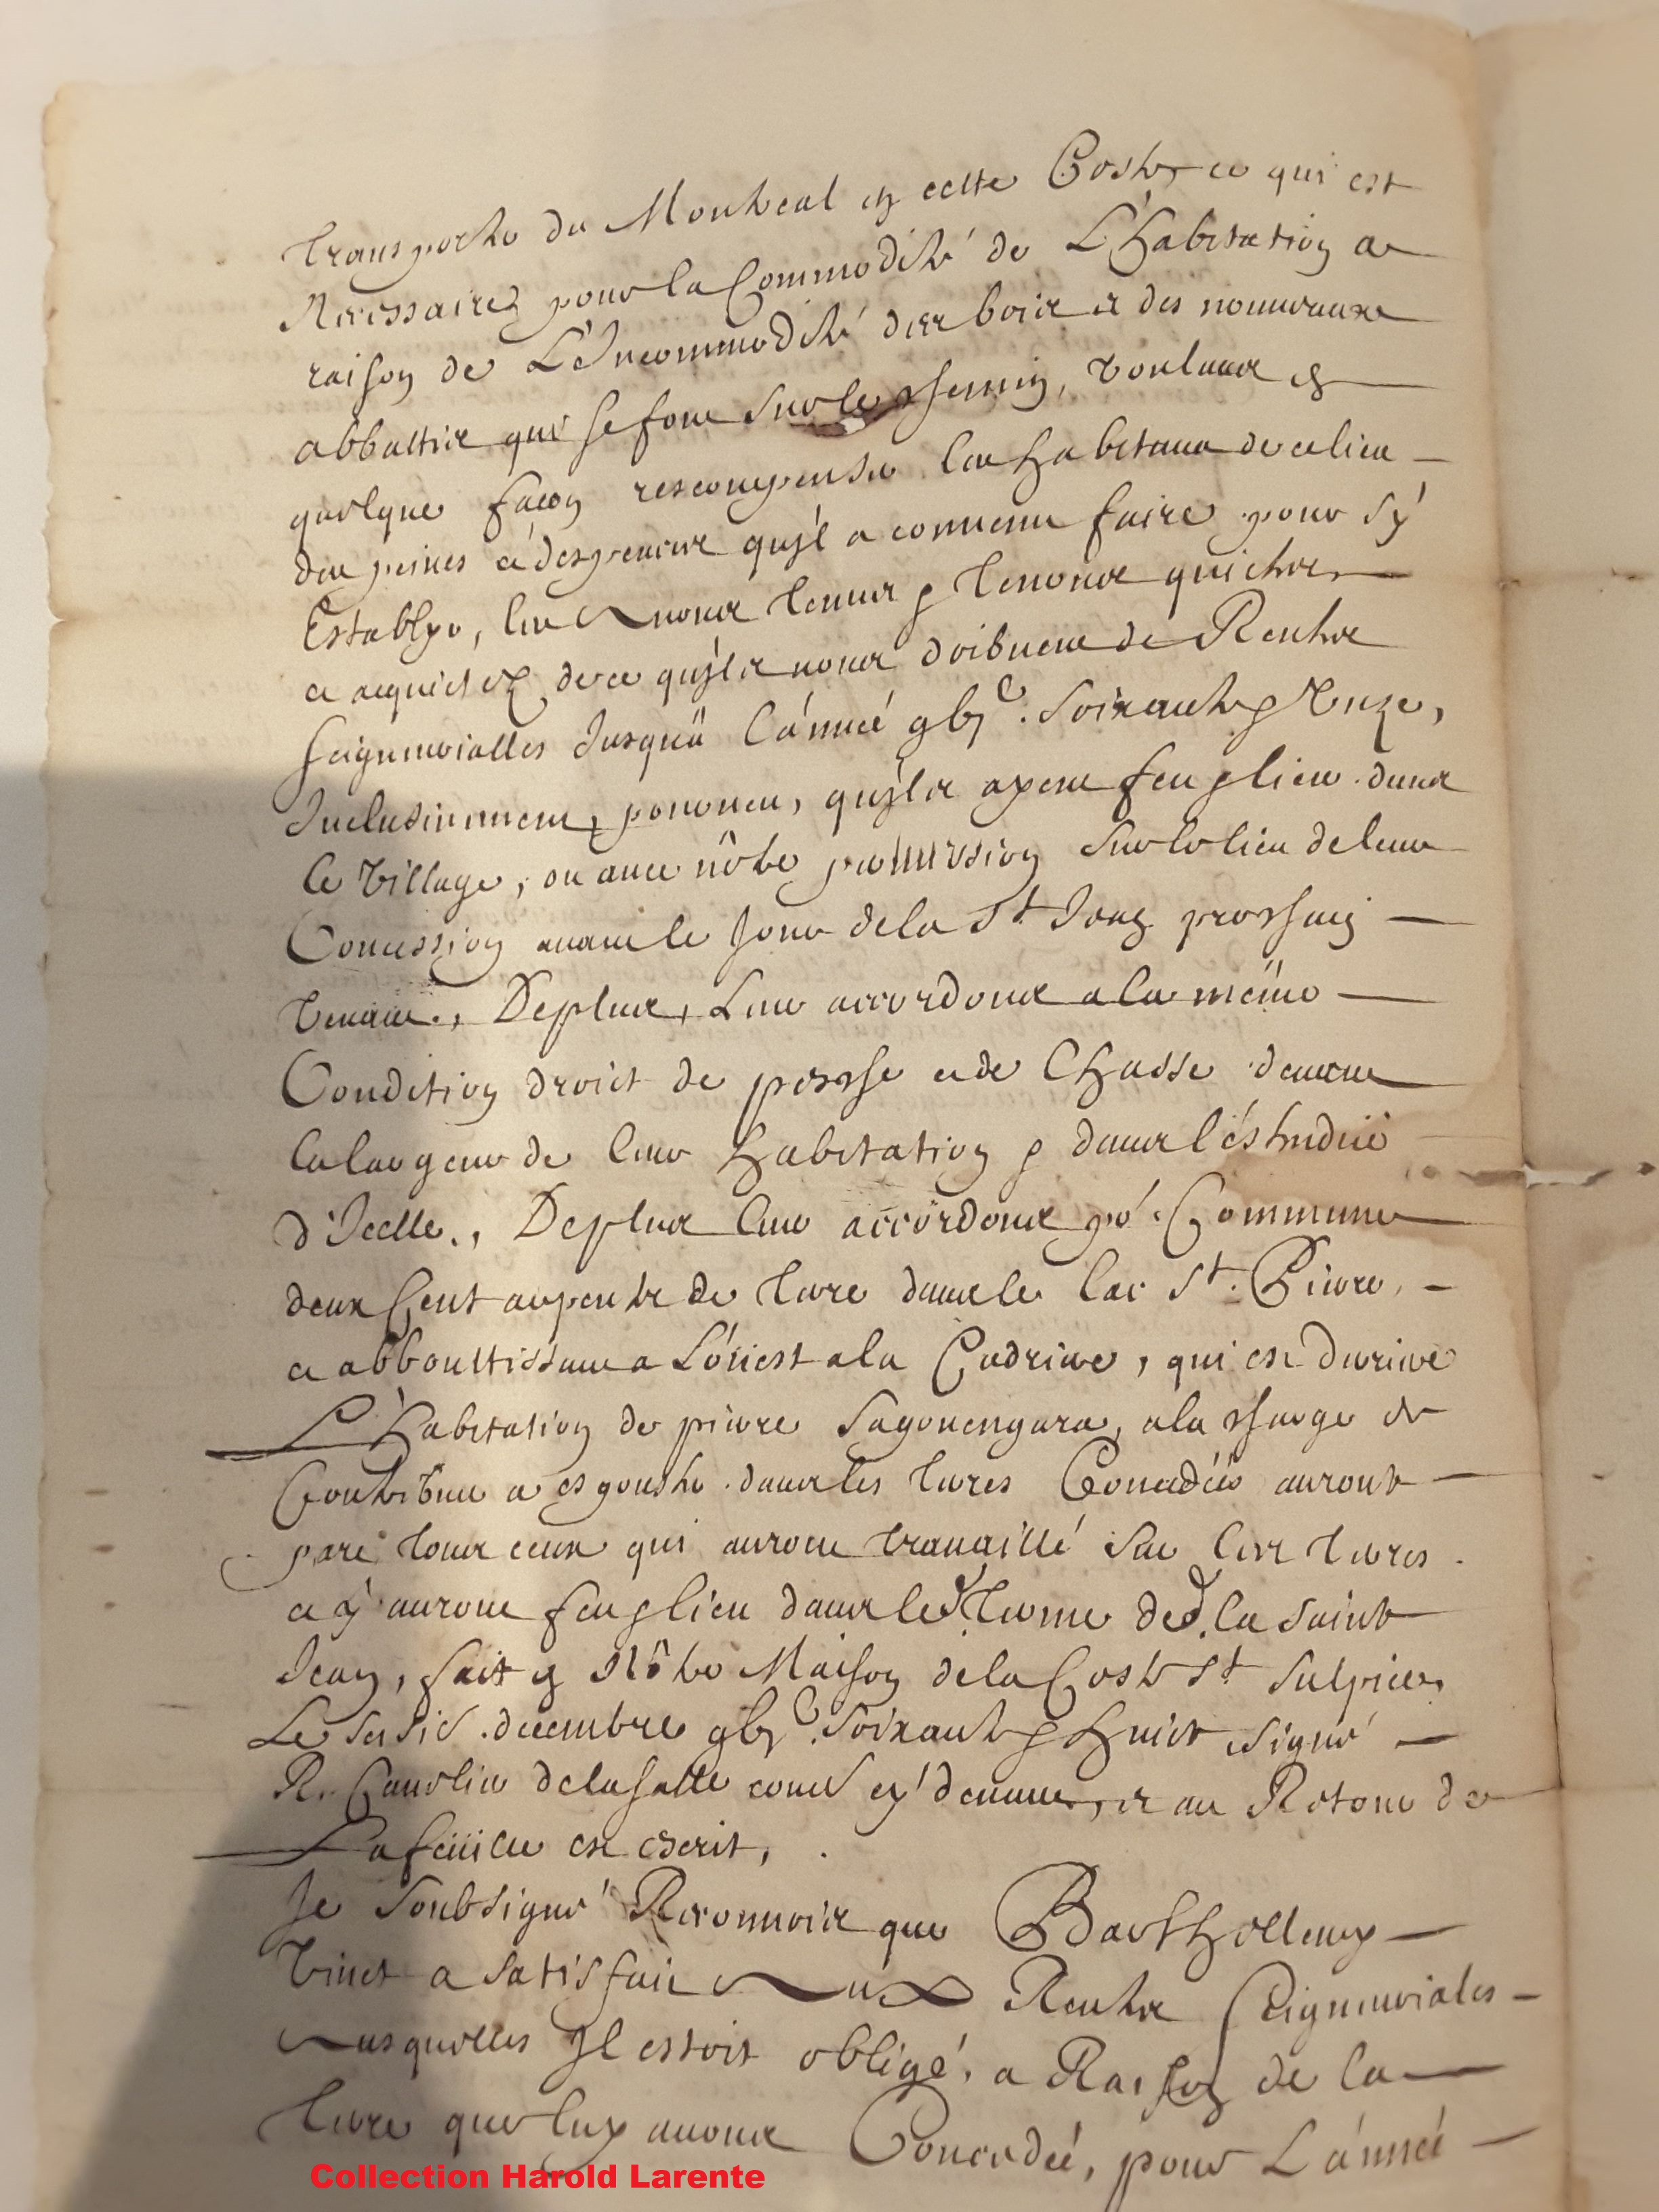 transporter du Montreal en cette Coste, ce qui est
Necessaires pour la Commodité de L'habitation a
raison de L'Incommodité des bois et des nouueaux
abbattis qui se font sur le chemin, voulant en
quelque façon rescompenser leur habitans de ce lieu
des peines et despences qu'jl a conuenu faire pour s'y
Establyr, les auons tenus et tenons quictes
et acquictez de ce qu'jls nous doibuent de Rentes
seigneurialles Jusqu'à l'année gbjc. soixante et Unze,
Inclusiuement, pourueu, qu'jls ayent feu et lieu dans
le Village, ou auec nôtre permission sur le lieu de leur
Concession auant le Jour de la St Jean prochain
venant, De plus, Leur accordons a la même
Condition droict de pesche et de Chasse deuant
la largeur de leur habitation et dans l'éstenduë
d'Jcelle, De plus leur accordons po. Commune
deux Cent arpents de terre dans le lac St. Pierre,
et abboutissant a L'oüest a la , qui est Derriere
L'habitation de pierre Sagouengara, a la charge de
Contribuer a esgouster dans les terres Concedées auront
part tous ceux qui auront trauaillé sur leur terres
et y auront feu et lieu dans led. terme de d. la saint
Jean, fait en Nôtre Maison de la Coste St Sulpice,
Le decembre gbjc. soixante et huict signé
R. Cauelier de la salle comd cy deuant, et au Retour de
La feüille est escrit,
Je soubsigné Reconnois que Barthellemy
Vinet a satisfait aux Rentes Seigneuriales
ausquelles Jl estoit obligé, a Raison de la
terre que luy auons Concedée, pour L'année
Collection Harold Larente